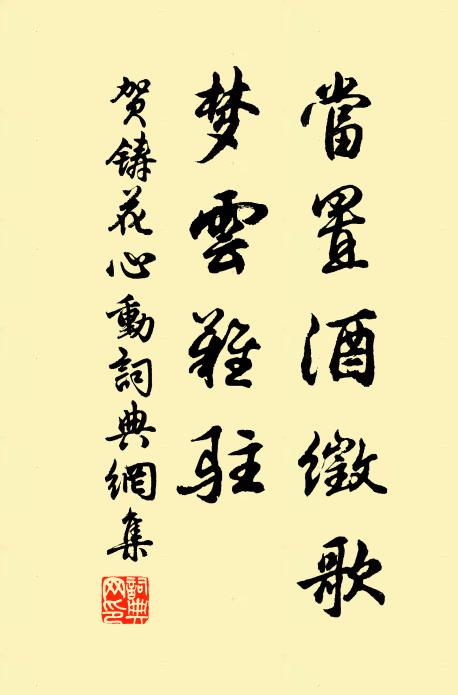 當置酒徵歌
梦雲難駐
贺鑄花心動詞典網集
詞典网印